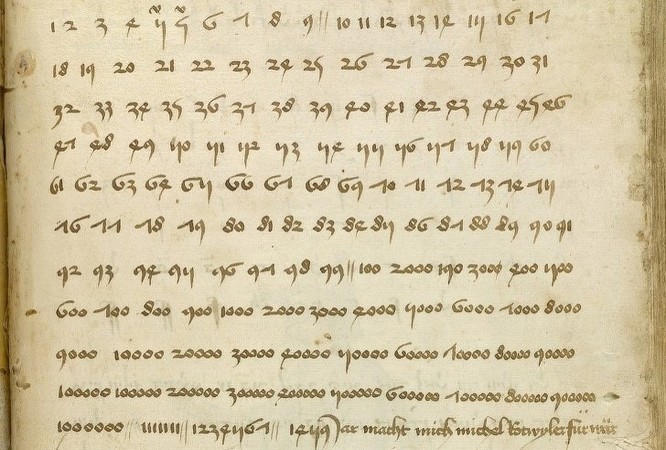 1 2 3 4 5 5 6 7 8 9 // 10 11 12 13 14 15 16 17
18 19 20 21 22 23 24 25 26 27 28 29 30 31
32 33 34 35 36 37 38 39 40 41 42 43 44 45 46
47 48 49 50 51 52 53 54 55 56 57 58 59 60
61 62 63 64 65 66 67 68 69 70 71 72 73 74 75
76 77 78 79 80 81 82 83 84 85 86 87 88 89 90 91
92 93 94 95 96 97 98 99 // 100 2000 190 3000 400 500
600 700 800 900 1000 2000 3000 4000 5000 6000 7000 8000
9000 10000 20000 30000 40000 50000 60000 70000 80000 90000
100000 100000 200000 300000 400000 500000 600000 700000 800000 900000
1000000 // 1111111 // 1234567 // 1459) ar macht mich michel Rotwyler für